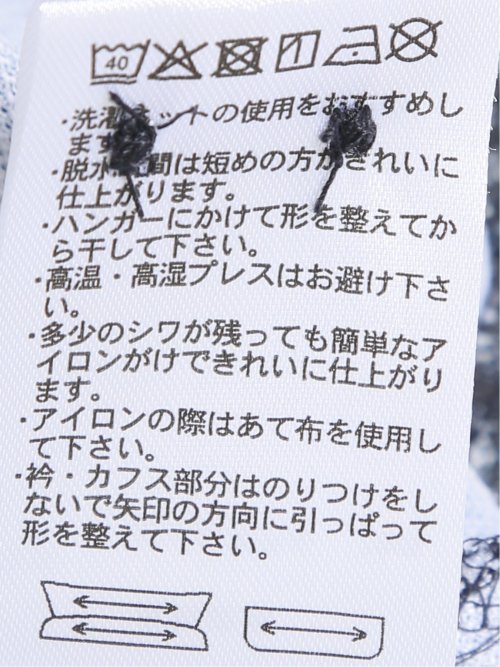 40
・洗濯ネットの使用をおすすめし
ます。
・脱水時間は短めの方がきれいに
仕上がります。
・ハンガーにかけて形を整えてか
ら干して下さい。
・高温・高湿プレスはお避け下さ
い。
・多少のシワが残っても簡単なア
イロンがけできれいに仕上がり
ます。
・アイロンの際はあて布を使用し
て下さい。
・衿・カフス部分はのりつけをし
ないで矢印の方向に引っぱって
形を整えて下さい。